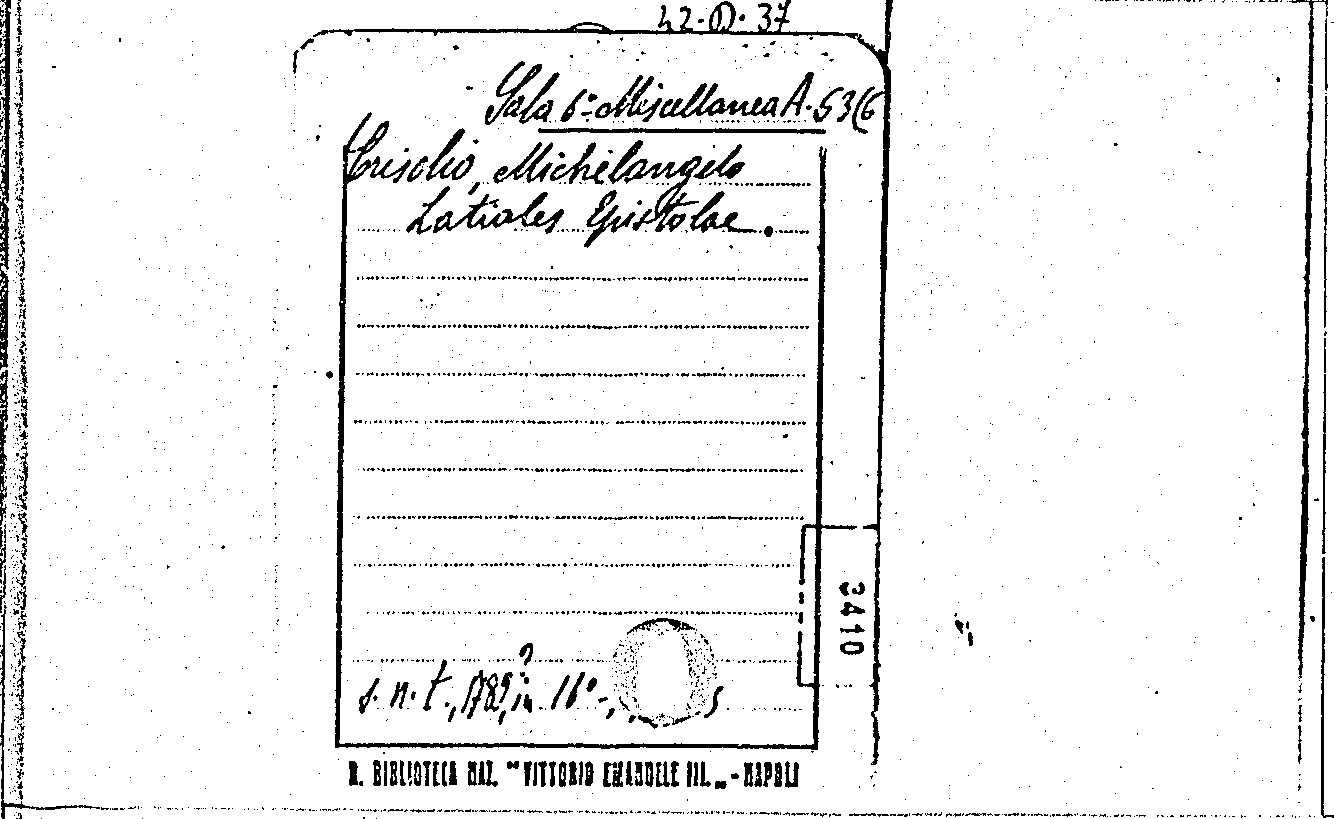 42-D.37
Sala 6ª Miscellanea A. 53(6
Grisolio, Michelangelo
Latiales Epistolae.
s. n. t., in 16°-,
3410
R. BIBLIOTECA NAZ. "VITTORIO EMANUELE III." - NAPOLI